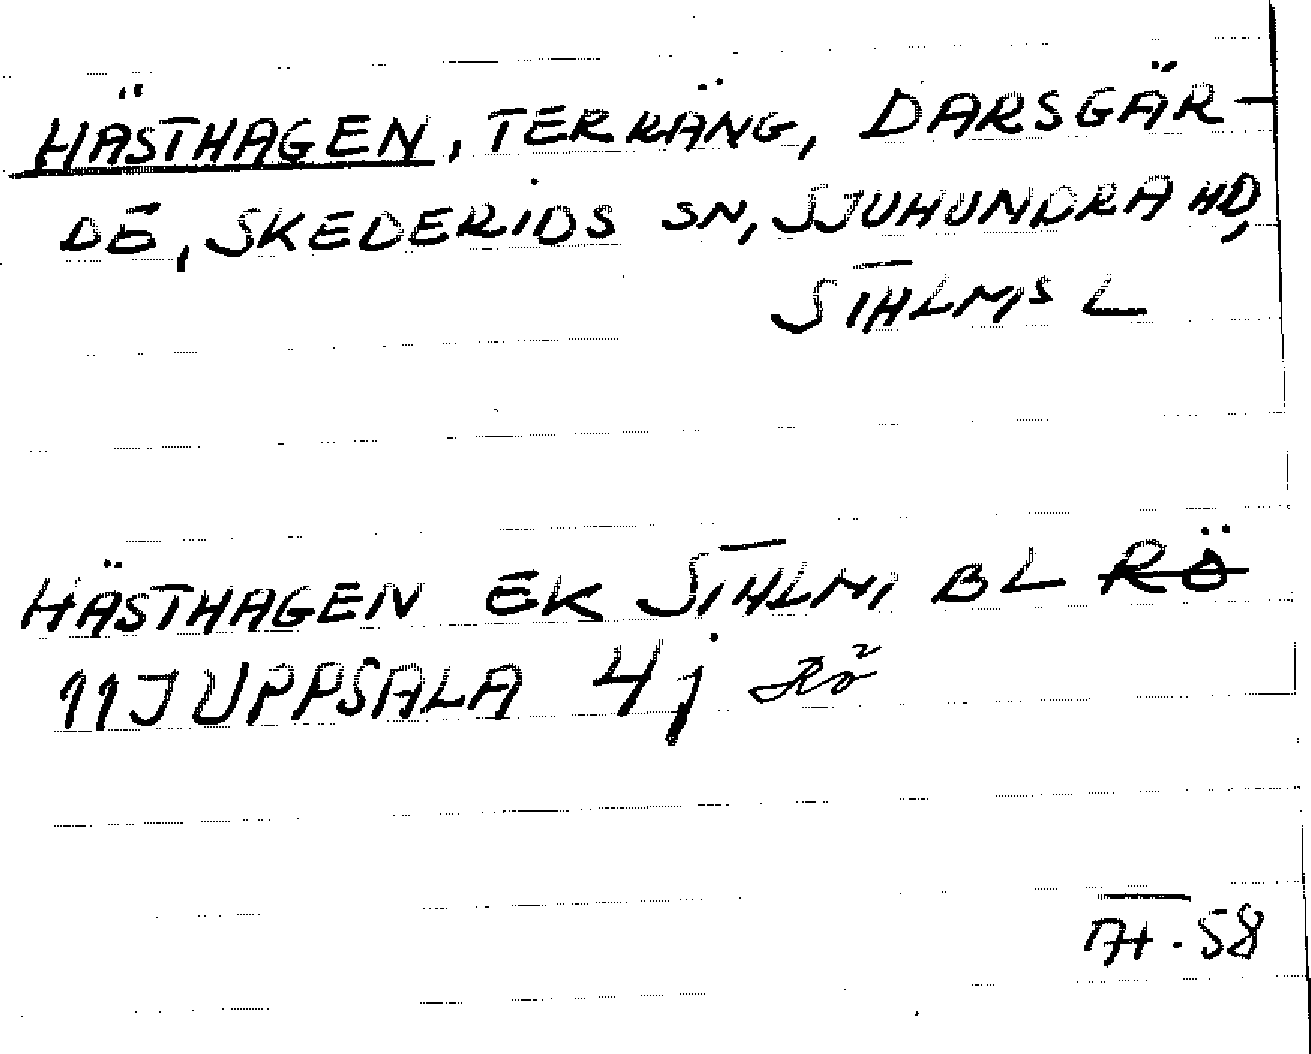 HÄSTHAGEN, TERRÄNG, DARSGÄR-
DE, SKEDERIDS SN, SJUHUNDRA HD,
STHLMS L
HÄSTHAGEN EK STHLM BL RÖ
11J UPPSALA 4j Rö